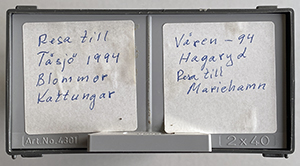 Resa till
Täsjö 1994
Blommor
Kattungar
Våren - 94
Hagaryd
Resa till
Mariehamn
Art. No. 4301
2x40